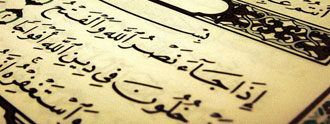 إِذَا جَآءَ نَصْرُ اللَّهِ وَالْفَتْحُ
خُلُونَ فِى دِينِ اللَّهِ أَفْوَا
وَاسْتَغْفِرْهُ